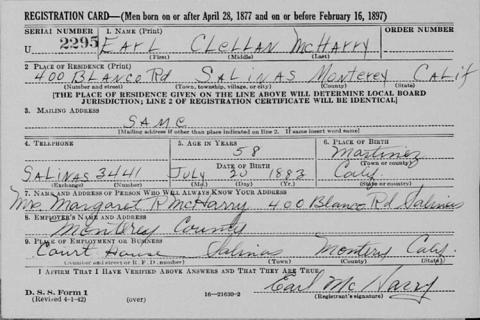 REGISTRATION CARD—(Men born on or after April 28, 1877 and on or before February 16, 1897)
SERIAL NUMBER 1. NAME (Print)
U 2295 EARL CLELLAN McHARRY
(First) (Middle) (Last)
2 PLACE OF RESIDENCE (Print)
400 BLANCO Rd SALINAS Monterey CALIF
(Number and street) (Town, township, village, or city) (County) (State)
[THE PLACE OF RESIDENCE GIVEN ON THE LINE ABOVE WILL DETERMINE LOCAL BOARD
JURISDICTION; LINE 2 OF REGISTRATION CERTIFICATE WILL BE IDENTICAL]
3. MAILING ADDRESS
SAME
[Mailing address if other than place indicated on line 2. If same insert word same]
4. TELEPHONE 5. AGE IN YEARS 6. PLACE OF BIRTH
58 Martinez
DATE OF BIRTH (Town or county)
SALINAS 3441 JULY 20 1883 Calif.
(Exchange) (Number) (Mo.) (Day) (Yr.) (State or country)
7. NAME AND ADDRESS OF PERSON WHO WILL ALWAYS KNOW YOUR ADDRESS
Mrs. Margaret R McHARRY 400 Blanco Rd Salinas
8. EMPLOYER'S NAME AND ADDRESS
Monterey County
9. PLACE OF EMPLOYMENT OR BUSINESS
Court House Salinas Montery Calif.
(Number and street or R. F. D. number) (Town) (County) (State)
I AFFIRM THAT I HAVE VERIFIED ABOVE ANSWERS AND THAT THEY ARE TRUE.
D. S. S. Form 1 Earl McHarry
(Revised 4-1-42) (over) 16—21630-2 (Registrant's signature)